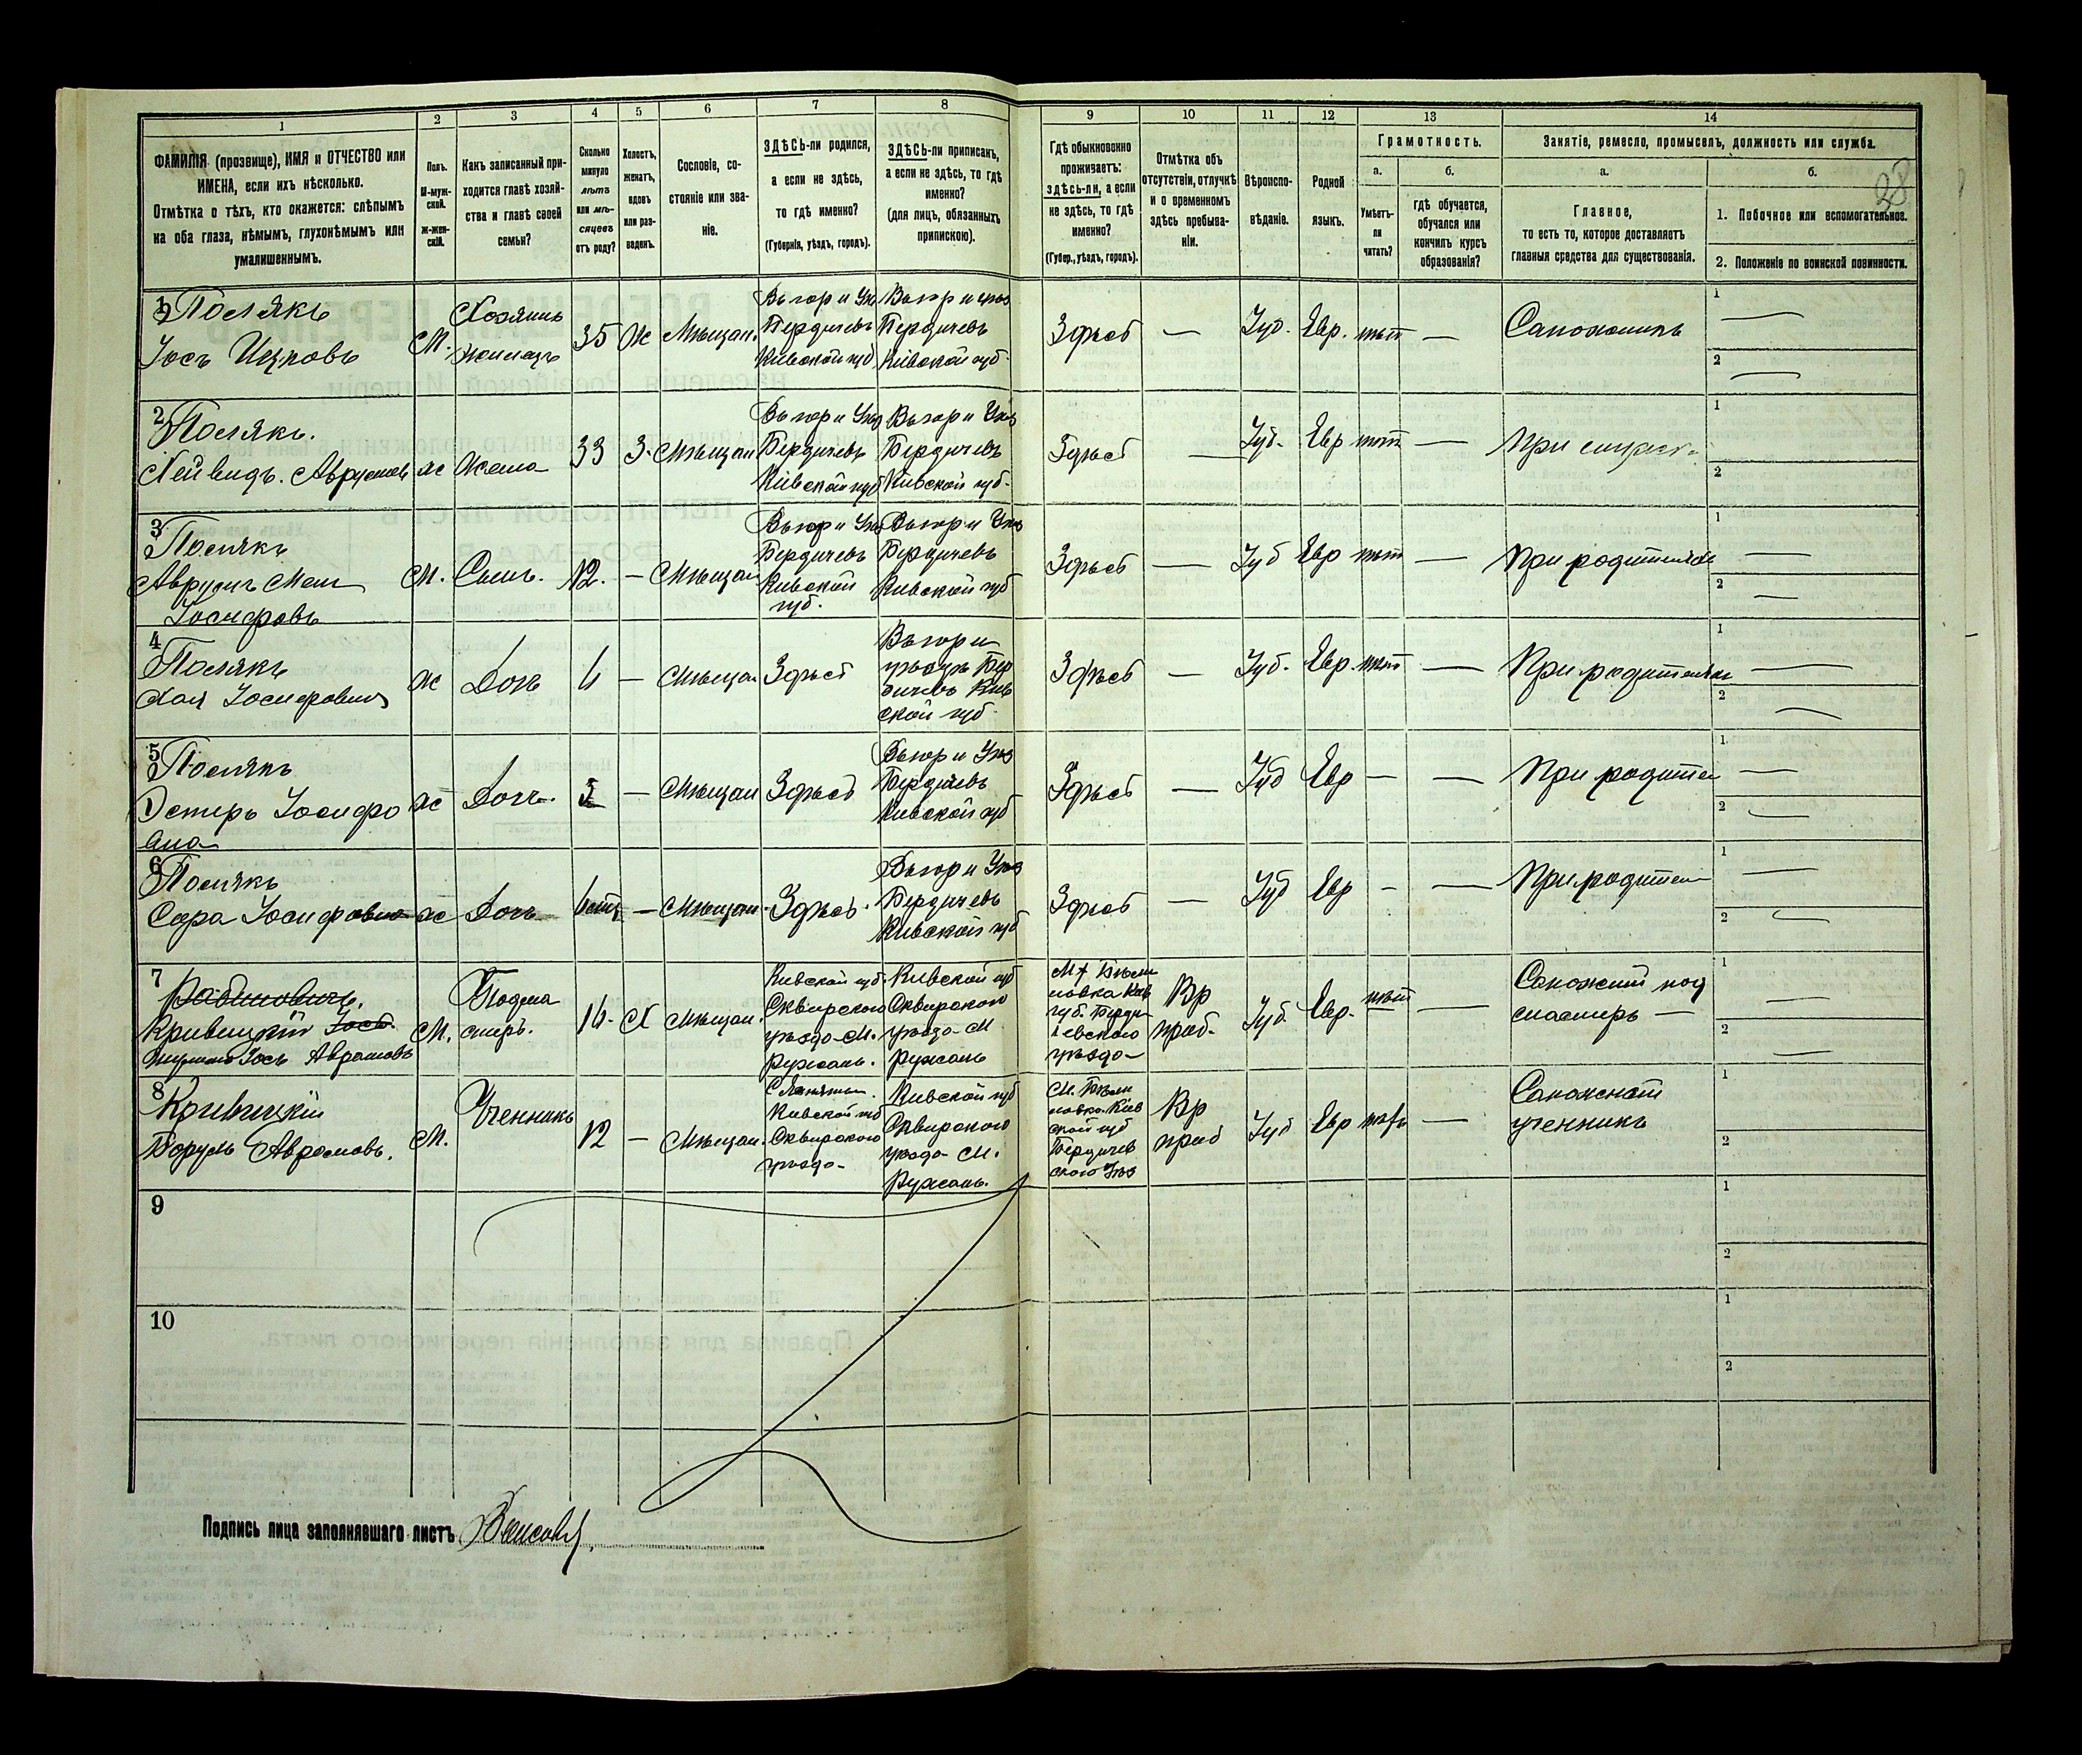 1
2
3
4
5
6
7
8
9
10
11
12
13
14
ФАМИЛІЯ (прозвище), ИМЯ и ОТЧЕСТВО или
ИМЕНА, если ихъ нѣсколько.
Отмѣтка о тѣхъ, кто окажется: слѣпымъ
на оба глаза, нѣмымъ, глухонѣмымъ или
умалишеннымъ.
Полъ.
М-муж-
ской.
Ж-жен-
скій.
Какъ записанный при-
ходится главѣ хозяй-
ства и главѣ своей
семьи?
Сколько
минуло
лѣтъ
или мѣ-
сяцевъ
отъ роду?
Холостъ,
женатъ,
вдовъ
или раз-
веденъ.
Сословіе, со-
стояніе или зва-
ніе.
ЗДѢСЬ-ли родился,
а если не здѣсь,
то гдѣ именно?
(Губернія, уѣздъ, городъ).
ЗДѢСЬ-ли приписанъ,
а если не здѣсь, то гдѣ
именно?
(для лицъ, обязанныхъ
припискою).
Гдѣ обыкновенно
проживаетъ:
здѣсь-ли, а если
не здѣсь, то гдѣ
именно?
(Губер., уѣздъ, городъ).
Отмѣтка объ
отсутствіи, отлучкѣ
и о временномъ
здѣсь пребыва-
ніи.
Вѣроиспо-
вѣданіе.
Родной
языкъ.
Грамотность.
а.
Умѣетъ-
ли
читать?
б.
гдѣ обучается,
обучался или
кончилъ курсъ
образованія?
Занятіе, ремесло, промыселъ, должность или служба.
а.
Главное,
то есть то, которое доставляетъ
главныя средства для существованія.
б.
38
1. Побочное или вспомогательное.
2. Положеніе по воинской повинности.
1
Полякъ
Іосъ Ицковъ
М.
Хозяинъ
35
Ж
Мѣщан.
Въ гор и Уѣз
Бердичевъ
Кіевской губ.
Въ гор и уѣз
Бердичевъ
Кіевской губ.
Здѣсь
—
Іуд.
Евр.
нѣт
—
Сапожникъ
1
2
2
Полякъ.
ж
Жена
33
З.
Мѣщан
Въ гор и Уѣз
Бердичевъ
Кіевской губ
Въ гор и Уѣз
Бердичевъ
Кіевской губ.
Здѣсь
—
Іуд.
Евр
нѣт
—
При
1
2
3
Полякъ
Іосифовъ
М.
Сынъ.
12.
—
Мѣщан
Въ гор и Уѣз
Бердичевъ
Кіевской
губ.
Въ гор и Уѣз
Бердичевъ
Кіевской губ
Здѣсь
—
Іуд
Евр
нѣт
—
При родителях
1
2
4
Полякъ
Хая Іосифовна
ж
Дочь
—
Мѣщан
Здѣсь
Въ гор и
уѣздъ Бер
дичевъ Кіев
ской губ.
Здѣсь
—
Іуд.
Евр.
нѣт
—
При родителях
1
2
5
Полякъ
Эстеръ Іосифо
вна
ж
Дочь.
—
Мѣщан
Здѣсь
Въ гор и Уѣз
Бердичевъ
Кіевской губ
Здѣсь
—
Іуд
Евр
—
—
При родител
1
2
6
Полякъ
Сура Іосифовна
ж
Дочь
—
Мѣщан.
Здѣсь.
Въ гор и Уѣз
Бердичевъ
Кіевской губ
Здѣсь
—
Іуд
Евр
-
—
При родител
1
2
7
Рабиновичъ.
Кривицкій Іосъ.
Іосъ Аврамовъ
М.
Подма
стеръ.
16.
Х
Мѣщан.
Кіевской губ.
Сквирского
уѣзда М.
Ружинъ.
Кіевской губ
Сквирского
уѣзда М
Ружинъ
М. Бѣли
ловка Кіев
губ. Берди
чевского
уѣзда
Вр
праб.
Іуд.
Евр.
нѣт
—
Сапожній под
мастеръ —
1
2
8
Кривицкій
Борухъ Аврамовъ.
М.
Ученникъ
12
—
Мѣщан.
Кіевской губ
Сквирского
уѣзда
Кіевской губ
Сквирского
уѣзда М.
Ружинъ.
М. Бѣли
ловка Кіев
ской губ
Бердичев
ского Уѣз
Вр
праб
Іуд
Евр
нѣт
—
Сапожній
ученникъ
1
2
9
1
2
10
1
2
Подпись лица заполнявшаго листъ